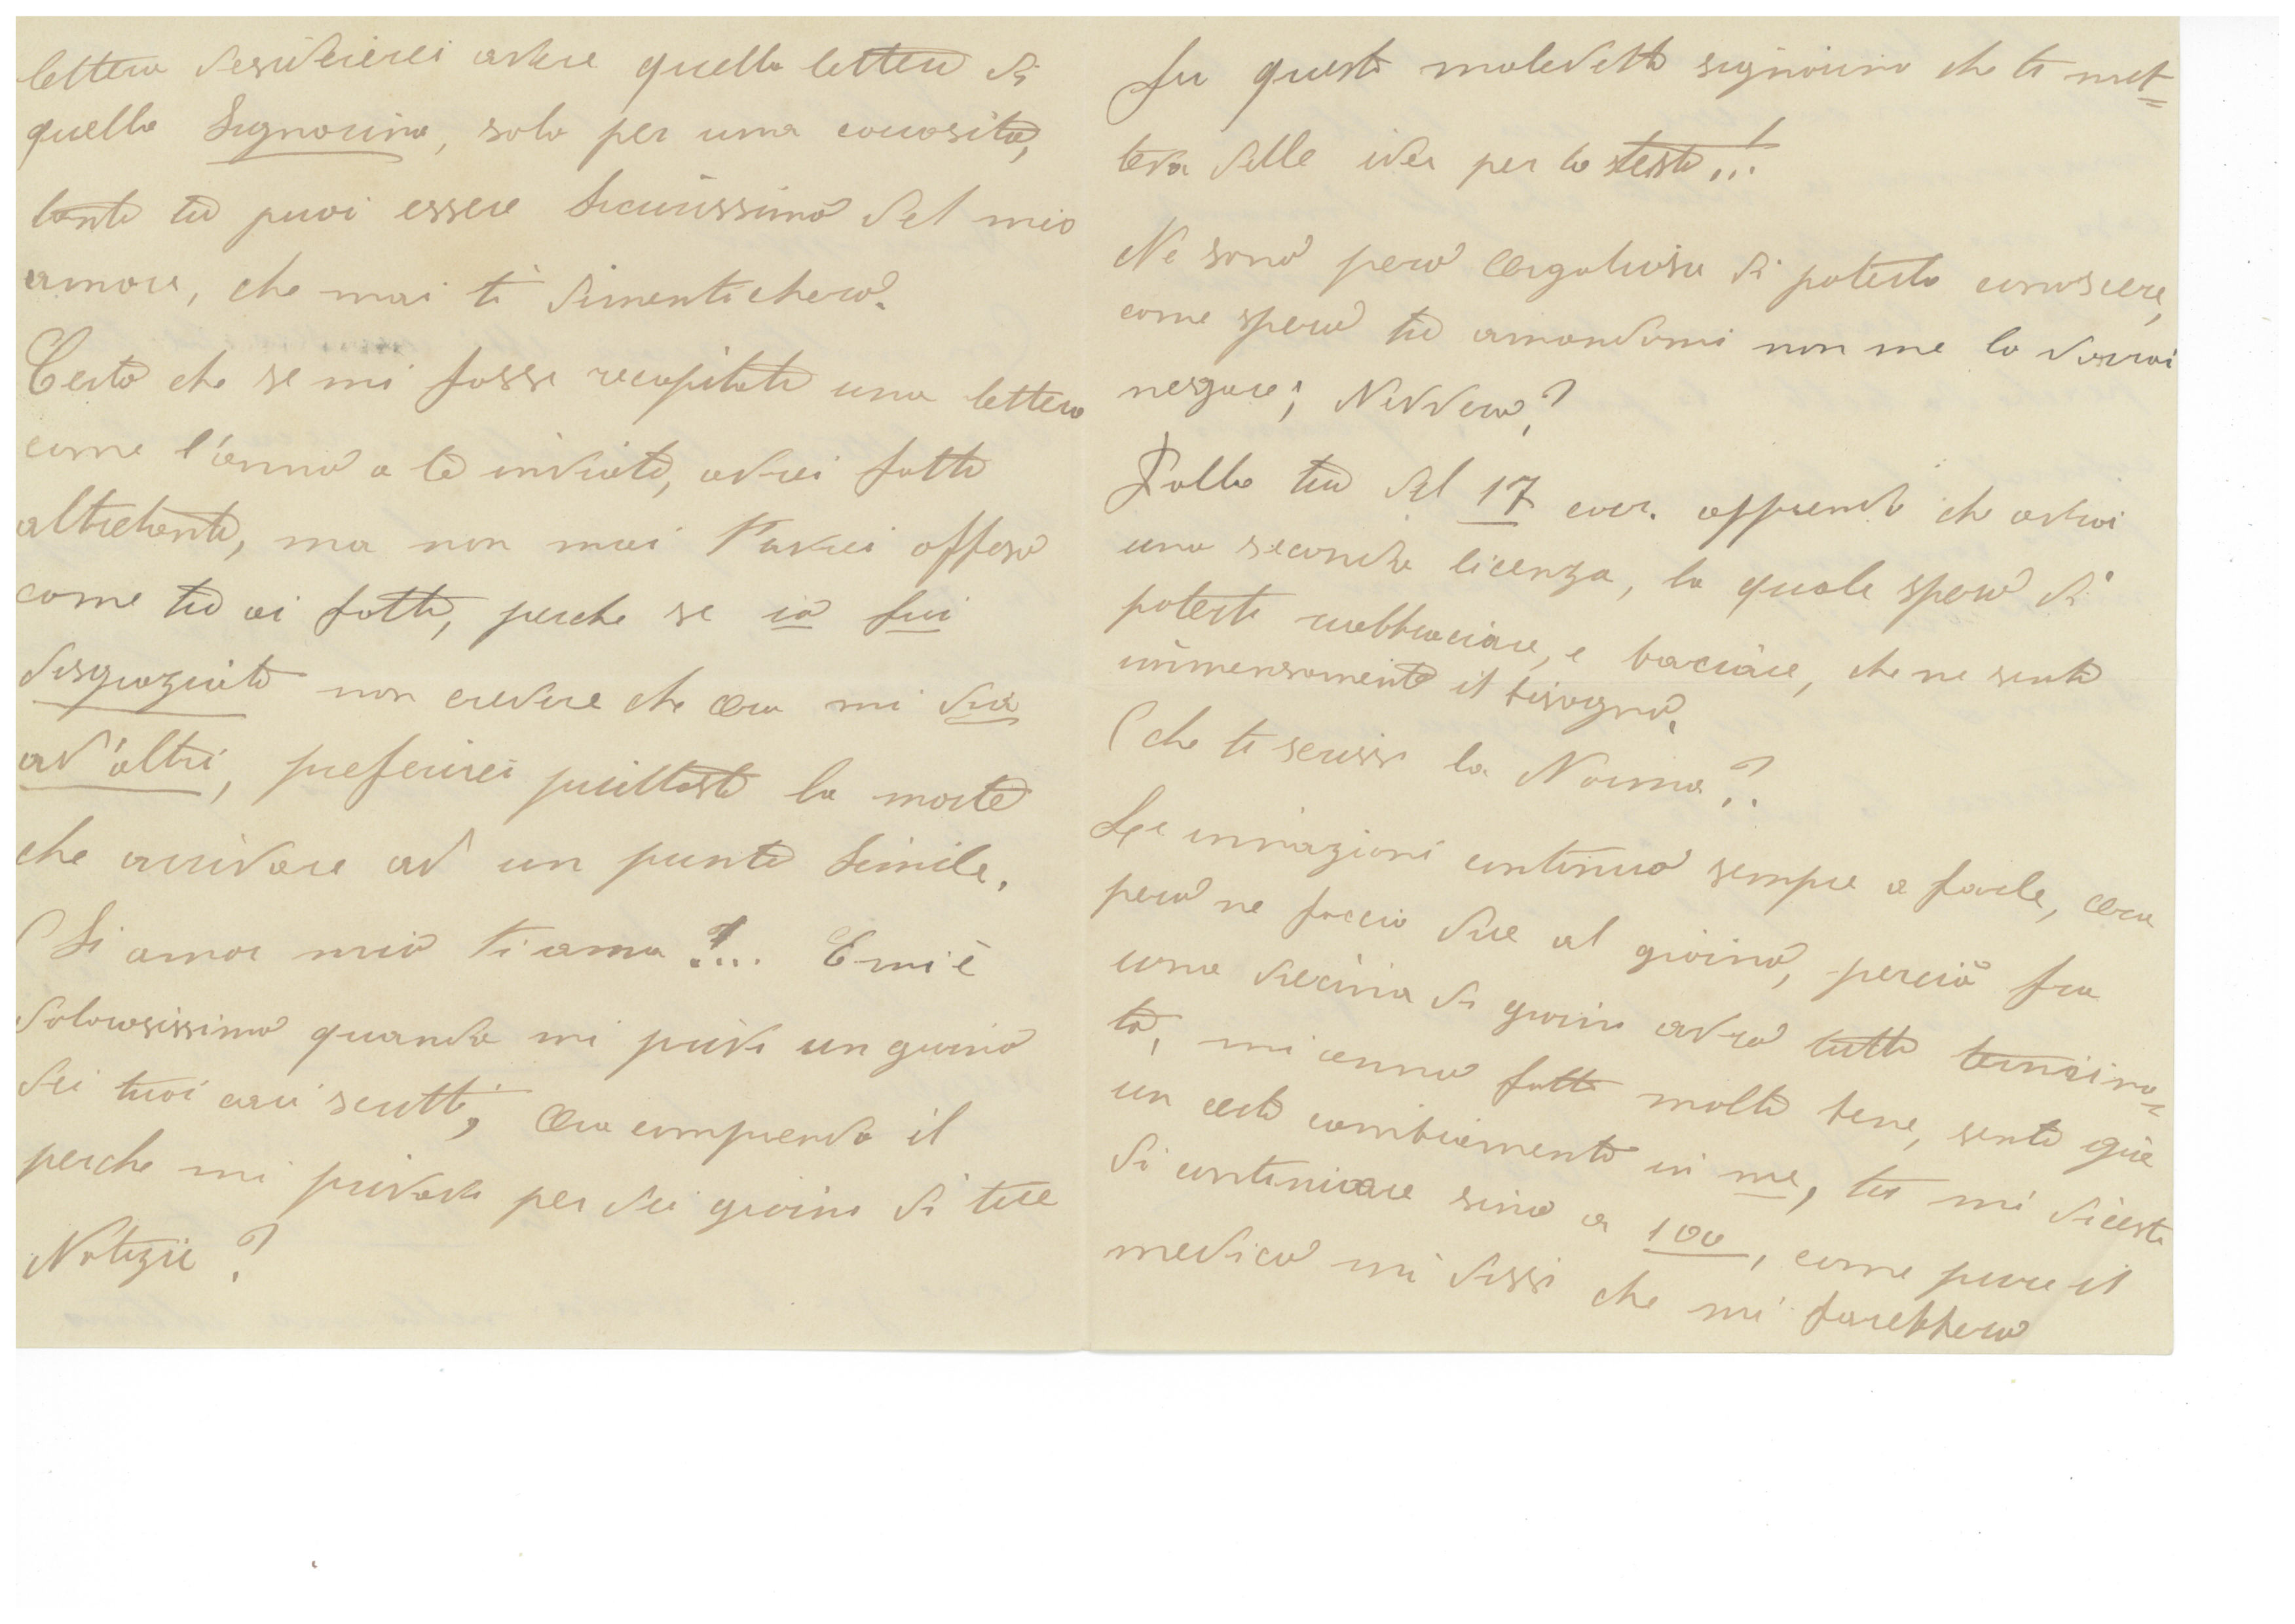 lettera desidererei avere quella lettera di
quella Signorina, solo per una curiosità,
tanto tu puoi essere sicurissimo del mio
amore, che mai ti dimenticherò.
Certo che se mi fosse recapitato una lettera
come l'anno a te inviato, avrei fatto
altretanto, ma non mai t'avrei offeso
come tu ai fatto, perche se io fui
disgraziata non credere che ora mi dia
ad'altri, preferirei piuttosto la morte
che arrivare ad un punto simile.
Si amor mio ti amo!... E mi è
dolorosissimo quando mi privi un giorno
dei tuoi cari scritti, ora comprendo il
perche mi privavi per dei giorni di tue
Notizie?
Fu questo maledetto signorino che ti met=
teva delle idee per la testa...!
Ne sono però orgogliosa di poterlo conoscere,
come spero tu amandomi non me lo vorrai
negare; Nevvero?
Dalla tua del 17 corr. apprendo che avrai
una seconda licenza, la quale spero di
poterti riabbraciare, e baciare, che ne sento
immensamente il bisogno.
che ti scrisse la Norma?
Le iniazioni continuo sempre a farle, ora
però ne faccio due al giorno, perciò fra
una diecina di giorni avrò tutto termina=
to, mi anno fatto molto bene, sento già
un certo cambiamento in me, tu mi dicesti
di continuare sino a 100, come pure il
medico mi disse che mi farebbero